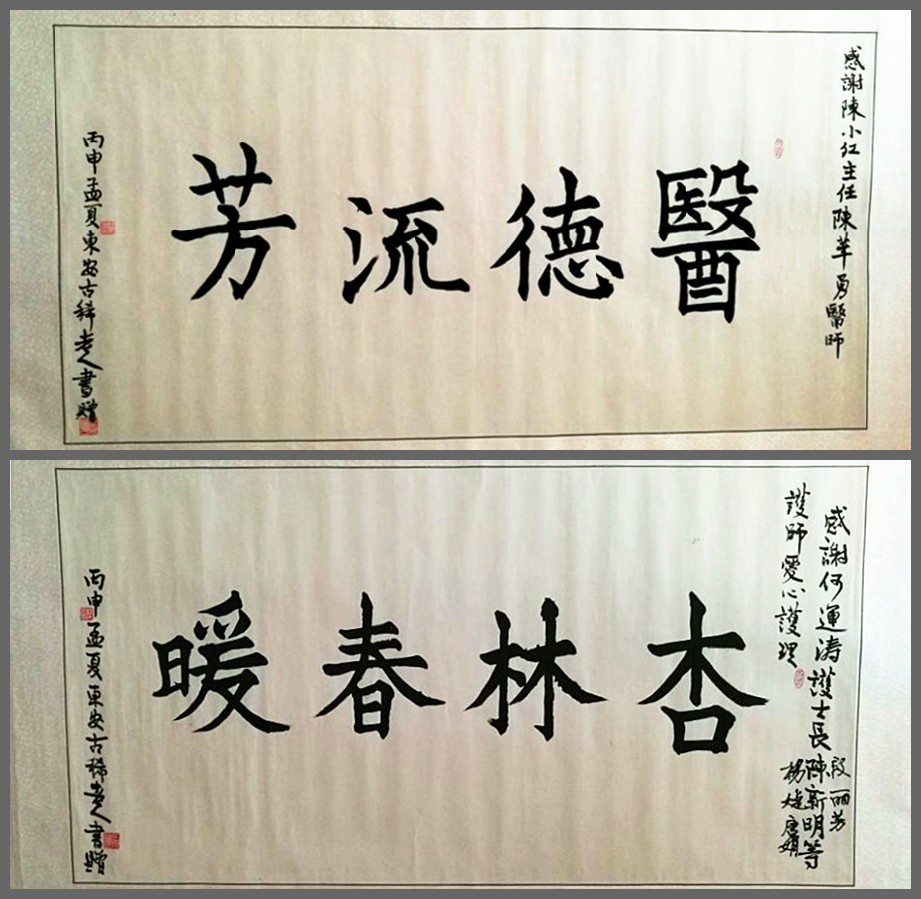 感謝陳小紅主任陳苹勇醫師
醫德流芳
丙申孟夏東安古稀老人書贈
感謝何運涛護士長段丽芳陳新明楊婕唐娟等
護師愛心護理
杏林春暖
丙申孟夏東安古稀老人書贈